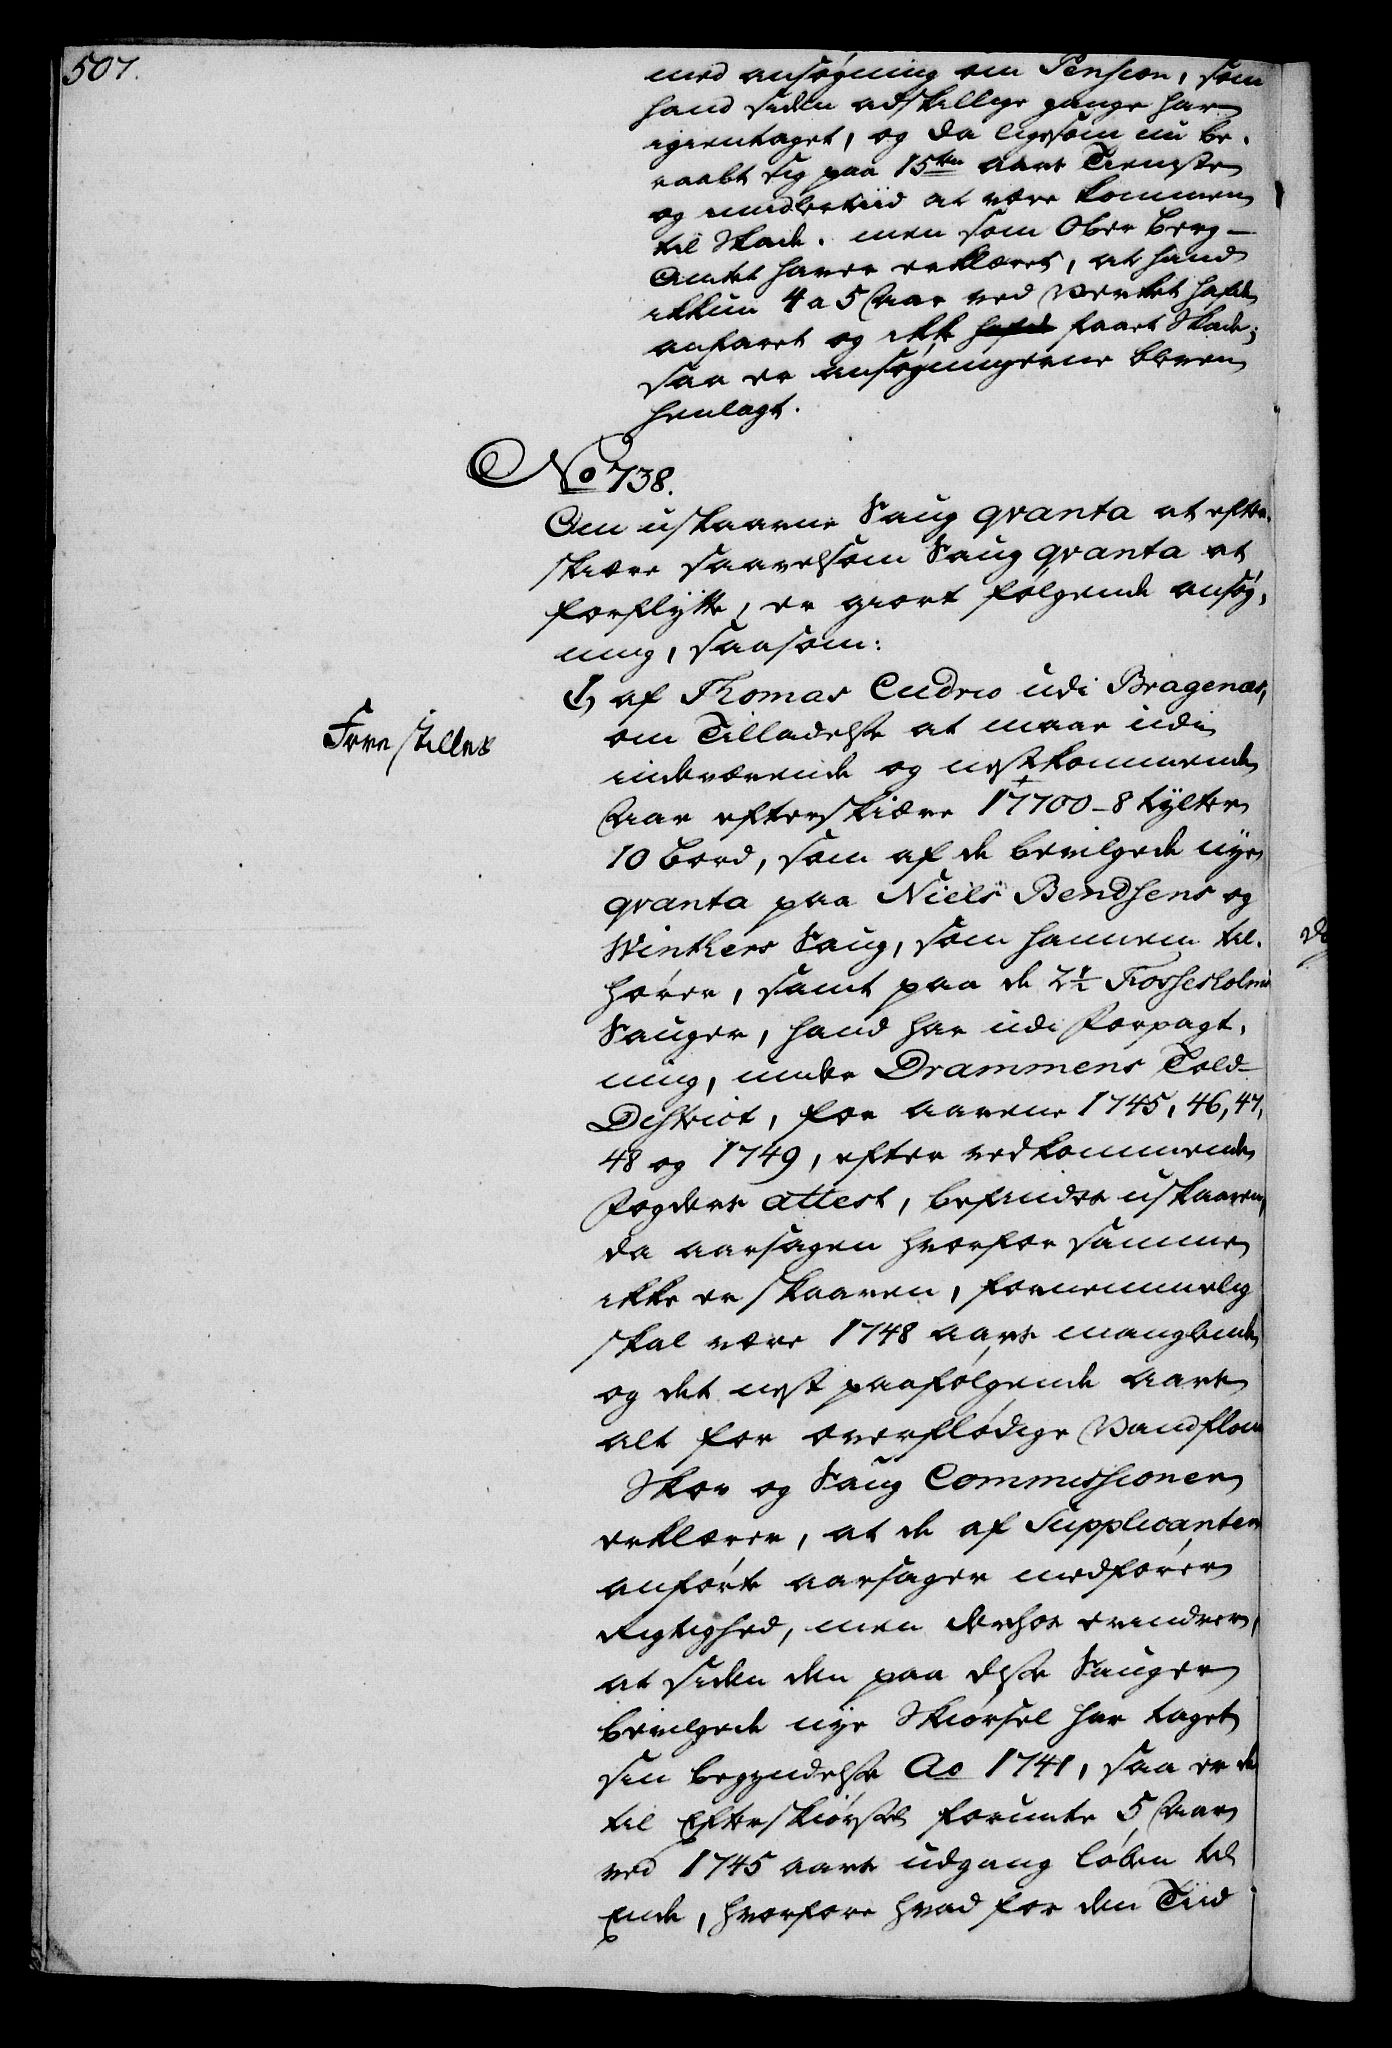 507.
med ansøgning om Pension, som
hand siden adskillige gange har
igientaget, og da ligesom nu be-
raabt sig paa 15ten aars Tieneste
og imidlertiid at være kommen
til Skade. men som Ober Berg-
Amtet haver erklæret, at hand
ikkun 4 a 5 Aar ved Verket hafde
anfaret og ikke hafde faaet Skade;
saa er ansøgningerne bleven
henlagt.
No 738.
Om uskaarne Saug qvanta at efter-
skiære saavelsom Saug qvanta at
forflytte, er giort følgende ansøg-
ning, saasom:
1, af Thomas Cudrio udi Bragenæs,
Forestilles
om Tilladelse at maae udi
indeværende og nestkommende
Aar efterskiære 17700-8 tylter
10 bord, som af de bevilgede nye
qvanta paa Niels Bendsens og
Winthers Saug, som hannem til-
hører, samt paa de 2½ Fossesholms
Sauger, hand har udi Forpagt-
ning, under Drammens Told-
District, for aarene 1745, 46, 47,
48 og 1749, efter vedkommende
Fogders attest, befindes uskaaren,
da aarsagen hvorfor samme
ikke er skaaren, fornemmelig
skal være 1748 aars manglende
og det nest paafølgende aars
alt for overflødige Vandflom
Skov og Saug Commissionen
erklærer, at de af Supplicanten
anførte aarsager medfører
Rigtighed, men derhos erindrer,
at siden den paa disse Sauger
bevilgede nye Skiørsel har taget
sin begyndelse Ao 1741, saa er de
til Efterskiørsel forunte 5 Aar
ved 1745 aars udgang løben til
Ende, hvorfore hvad for den Tiid